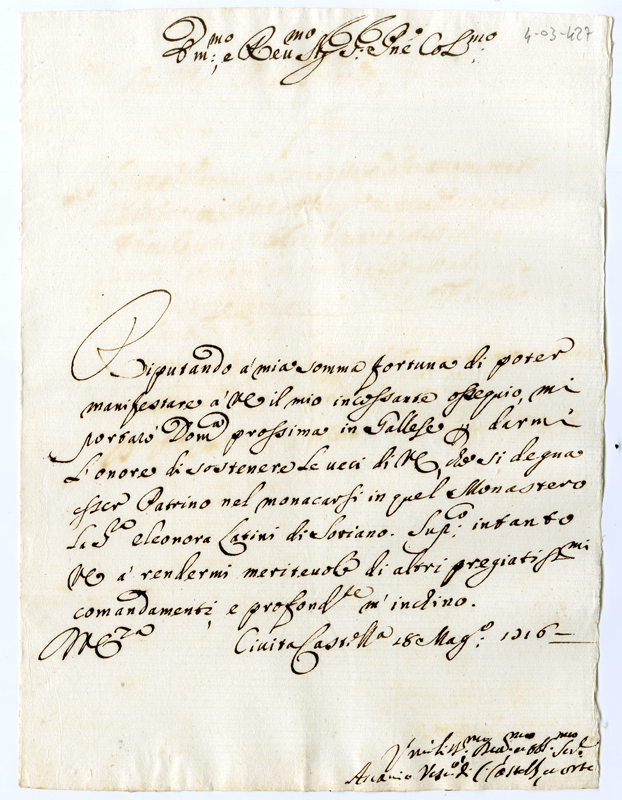 4-03-427
Em:mo e Reu:mo Sig:r P:rone Col:mo
Riputando à mia somma fortuna di poter
manifestare à VE il mio incessante ossequio, mi
portarò Dom:a prossima in Gallese p darmi
l'onore di sostenere le veci di VE, che si degna
esser Patrino nel monacarsi in quel Monastero
la S:ra Eleonora Latini di Soriano. Sup:co intanto
VE à rendermi meritevole di altri pregiatiss:mi
comandamenti, e profond:te m'inchino.
Civita Castell:a 28 Mag:o 1716
Vmiliss:mo Diu:mo et obb:mo Ser:
Vesc:o di C: Castell: e Orte